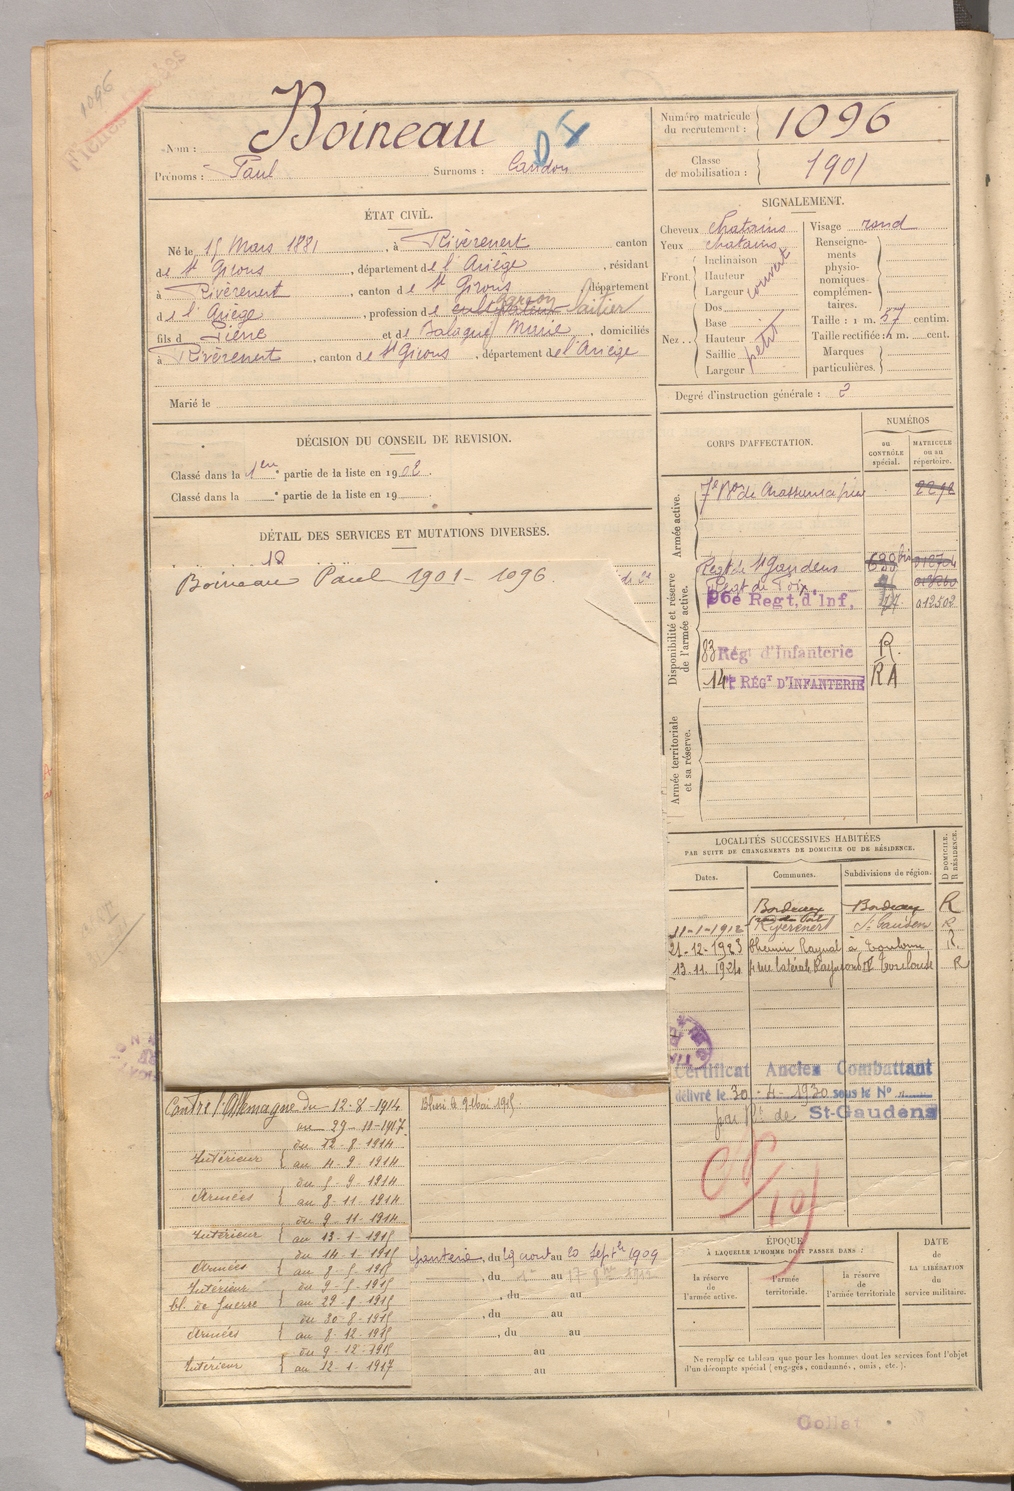 1096
Boineau
Nom :
Prénoms : Paul Surnoms :
Numéro matricule
du recrutement : 1096
Classe
de mobilisation : 1901
ÉTAT CIVIL.
Né le 15 Mars 1881, à Rivèrenert canton
de St Girons, département de l'Ariège, résidant
à Rivèrenert, canton de St Girons département
de l'Ariège, profession de cultivateur garçon laitier
fils de Pierre et de Balagué Marie, domiciliés
à Rivèrenert, canton de St Girons, département de l'Ariège
Marié le
SIGNALEMENT.
Cheveux chatains Visage rond
Yeux chatains
Front Inclinaison Hauteur Largeur couvert
Nez Dos Base Hauteur Saillie Largeur petit
Renseignements physionomiques complémentaires.
Taille : 1 m. 57 centim.
Taille rectifiée : 1 m. cent.
Marques particulières.
Degré d'instruction générale : 2
DÉCISION DU CONSEIL DE REVISION.
Classé dans la 1ère partie de la liste en 1902.
Classé dans la partie de la liste en 19
DÉTAIL DES SERVICES ET MUTATIONS DIVERSES.
Boineau Paul 1901 - 1096.
CORPS D'AFFECTATION.
NUMÉROS
au CONTRÔLE spécial.
MATRICULE ou au répertoire.
Armée active.
7e Bon de Chasseurs à pied 2292
Disponibilité et réserve
de l'armée active.
Regt de St Gaudens
Regt de Foix
96e Regt. d'Inf. 012502
83 Régt d'Infanterie R.
14e RÉGT D'INFANTERIE RA
Armée territoriale
et sa réserve.
LOCALITÉS SUCCESSIVES HABITÉES
PAR SUITE DE CHANGEMENTS DE DOMICILE OU DE RÉSIDENCE.
Dates. Communes. Subdivisions de région. D DOMICILE. R RÉSIDENCE.
Bordeaux Bordeaux R
11-1-1912 Rivèrenert St Gaudens R
21-12-1923 Chemin Raynal à Toulouse R
13-11-1924 4 rue latérale Toulouse R
Certificat Ancien Combattant
délivré le 30-4-1930 sous le No
St-Gaudens
Contre l'Allemagne du 12-8-1914
au 29-12-1917
du 12-8-1914
Intérieur au 4-9-1914
du 5-9-1914
Armées au 8-11-1914
du 9-11-1914
Intérieur au 13-1-1915
du 14-1-1915
Armées au 8-5-1915
Intérieur du 9-5-1915
bl. de guerre au 29-8-1915
du 30-8-1915
Armées au 8-12-1915
du 9-12-1915
Intérieur au 12-1-1917
Blessé le 9 Mai 1915.
fanterie, du 29 aout au 20 Septbre 1909
, du au
, du au
, du au
, du au
au
au
ÉPOQUE
À LAQUELLE L'HOMME DOIT PASSER DANS :
la réserve de l'armée active.
l'armée territoriale.
la réserve de l'armée territoriale
DATE de LA LIBÉRATION du service militaire.
Ne remplir ce tableau que pour les hommes dont les services font l'objet
d'un décompte spécial (engagés, condamné, omis, etc.).
Collat